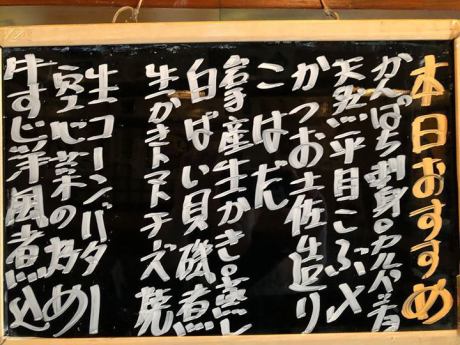 本日おすすめ
かんぱち刺身orカルパッチョ
天然平目こぶ〆
かつお土佐造り
こはだ
岩手産生かきor蒸し
白ばい貝磯煮
生かきトマトチーズ焼
生コーンバター
空心菜の炒め
牛すじ洋風煮込